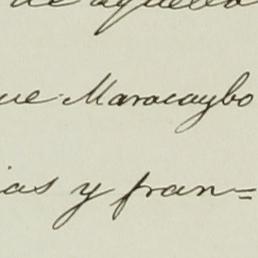 de aquella
que Maracaybo
ias y fran=